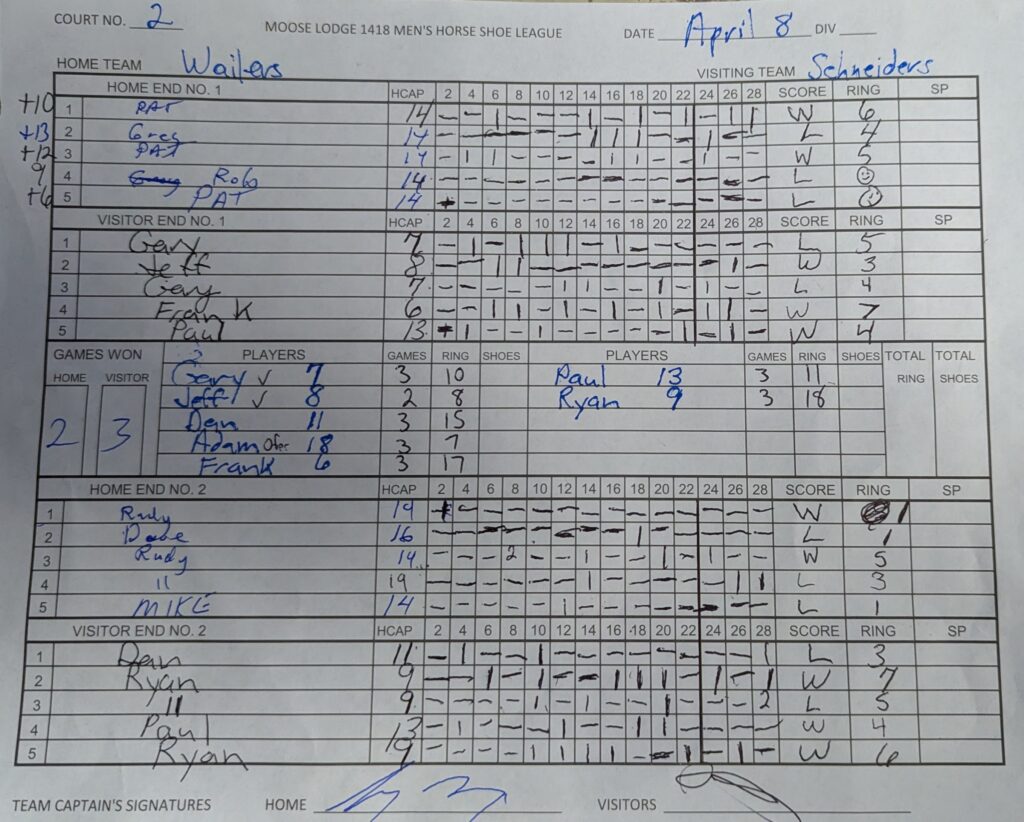 COURT NO. 2 MOOSE LODGE 1418 MEN'S HORSE SHOE LEAGUE DATE April 8 DIV
HOME TEAM Wailers VISITING TEAM Schneiders
HOME END NO. 1 HCAP 2 4 6 8 10 12 14 16 18 20 22 24 26 28 SCORE RING SP
+10 1 PAT 14 W 6
+13 2 Greg 14 L 4
+12 3 PAT 14 W 5
9 4 Rob 14 L
+6 5 PAT 14 L
VISITOR END NO. 1 HCAP 2 4 6 8 10 12 14 16 18 20 22 24 26 28 SCORE RING SP
1 Gary 7 L 5
2 Jeff 8 W 3
3 Gary 7 L 4
4 Frank 6 W 7
5 Paul 13 W 4
GAMES WON PLAYERS GAMES RING SHOES PLAYERS GAMES RING SHOES TOTAL RING TOTAL SHOES
HOME VISITOR
2 3
Gary ✓ 7 3 10 Paul 13 3 11
Jeff ✓ 8 2 8 Ryan 9 3 18
Dan 11 3 15
Adam 18 3 7
Frank 6 3 17
HOME END NO. 2 HCAP 2 4 6 8 10 12 14 16 18 20 22 24 26 28 SCORE RING SP
1 Rudy 19 W 1
2 Dave 16 L 1
3 Rudy 14 2 W 5
4 11 19 L 3
5 MIKE 14 L 1
VISITOR END NO. 2 HCAP 2 4 6 8 10 12 14 16 18 20 22 24 26 28 SCORE RING SP
1 Dan 11 L 3
2 Ryan 9 W 7
3 11 9 2 L 5
4 Paul 13 W 4
5 Ryan 9 W 6
TEAM CAPTAIN'S SIGNATURES HOME VISITORS